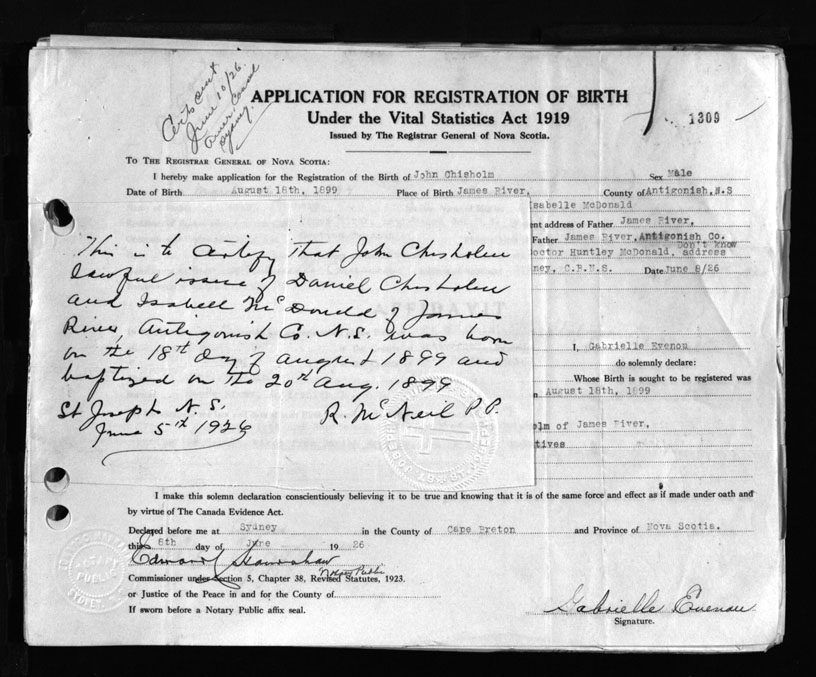 Cert sent
June 10/26.
Amer. Consul
Sydney.
APPLICATION FOR REGISTRATION OF BIRTH
Under the Vital Statistics Act 1919
Issued by The Registrar General of Nova Scotia.
1309
TO THE REGISTRAR GENERAL OF NOVA SCOTIA:
I hereby make application for the Registration of the Birth of John Chisholm Sex Male
Date of Birth August 18th, 1899 Place of Birth James River, County of Antigonish, N.S
Isabelle McDonald
ent address of Father James River,
Father James River, Antigonish Co.
Don't know
octor Huntley McDonald, address
ney, C.B.N.S. Date June 8/26
This is to certify that John Chisholm
lawful issue of Daniel Chisholm
and Isabell McDonald of James
River, Antigonish Co. N.S. was born
on the 18th day of August 1899 and
baptized on the 20th Aug. 1899
St Joseph N.S. R. McNeil P.P.
June 5th 1926
I, Gabrielle Evenou
do solemnly declare:
Whose Birth is sought to be registered was
n August 18th, 1899
olm of James River,
tives
I make this solemn declaration conscientiously believing it to be true and knowing that it is of the same force and effect as if made under oath and
by virtue of The Canada Evidence Act.
Declared before me at Sydney in the County of Cape Breton and Province of Nova Scotia.
this 8th day of June 1926
Edward
Notary Public
Commissioner under Section 5, Chapter 38, Revised Statutes, 1923.
or Justice of the Peace in and for the County of
If sworn before a Notary Public affix seal.
Gabrielle Evenou
Signature.
NOTARY
PUBLIC
SYDNEY